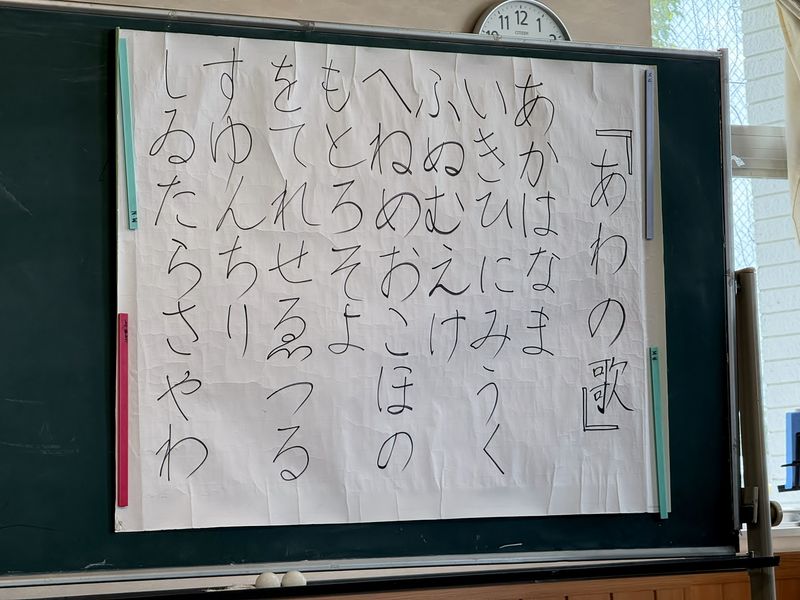 『あわの歌』
あかはなま
いきひにみうく
ふぬむえけ
へねめおこほの
もとろそよ
をてれせゑつる
すゆんちり
しゐたらさやわ
11 12 1
CITIZEN